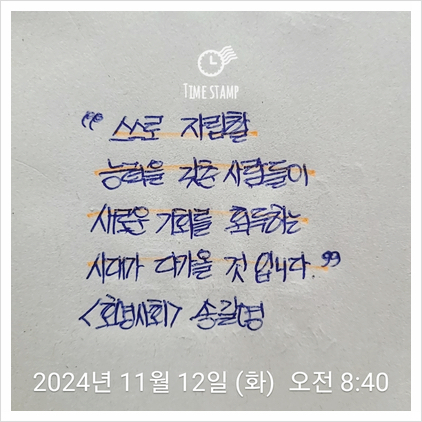 TIME STAMP
“ 스스로 자립할
능력을 갖춘 사람들이
새로운 기회를 획득하는
시대가 다가올 것 입니다. ”
<호명사회> 송길영
2024년 11월 12일 (화) 오전 8:40